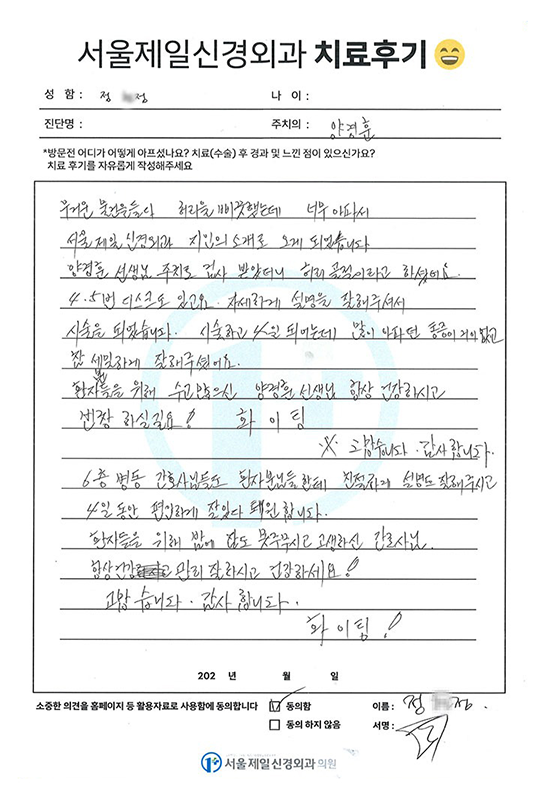 서울제일신경외과 치료후기
성 함 : 정 정 나 이 :
진단명 : 주치의 : 양경훈
*방문전 어디가 어떻게 아프셨나요? 치료(수술) 후 경과 및 느낀 점이 있으신가요?
치료 후기를 자유롭게 작성해주세요
무거운 물건을들어 허리를 삐끗했는데 너무 아파서
서울제일신경외과 지인의소개로 오게 되었습니다
양경훈 선생님 주치로 검사 받았더니 허리 골절이라고 하셨어요.
4.5번 디스크도 있고요. 자세하게 설명을 잘해주셔서
시술을 되었습니다. 시술하고 4일 되어는데 많이 아파던 통증이 거이 없고
참 세밀하게 잘해주셨어요.
환자들을 위해 수고많으신 양경훈선생님 항상 건강하시고
번창 하실길요! 화이팅
고맙습니다. 감사합니다.
6층 병동 간호사님들도 환자분님들한데 친절하게 설명도잘해주시고
4일동안 편안하게 잘있다 퇴원합니다.
환자들을 위해 밤에 잠도 못주무시고 고생하신 간호사님.
항상건강 만리 잘하시고 건강하세요!
고맙습니다. 감사합니다.
화이팅!
202 년 월 일
소중한 의견을 홈페이지 등 활용자료로 사용함에 동의합니다 동의함 이름 : 정 정.
동의 하지 않음 서명 :
서울제일신경외과의원